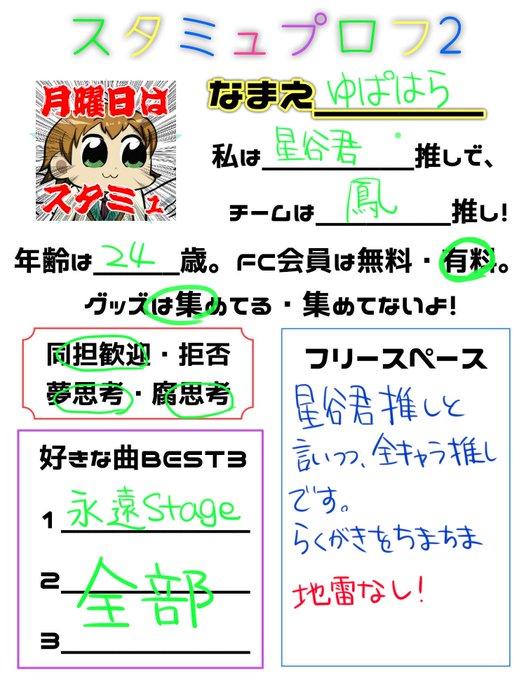 スタミュプロフ2
月曜日は
スタミュ
なまえ ゆぱはら
私は 星谷君 推しで、
チームは 鳳 推し!
年齢は 24 歳。FC会員は無料・有料。
グッズは集めてる・集めてないよ!
同担歓迎・拒否
夢思考・腐思考
好きな曲BEST3
1 永遠Stage
2 全部
3
フリースペース
星谷君推しと
言いつつ、全キャラ推し
です。
らくがきをちまちま
地雷なし!